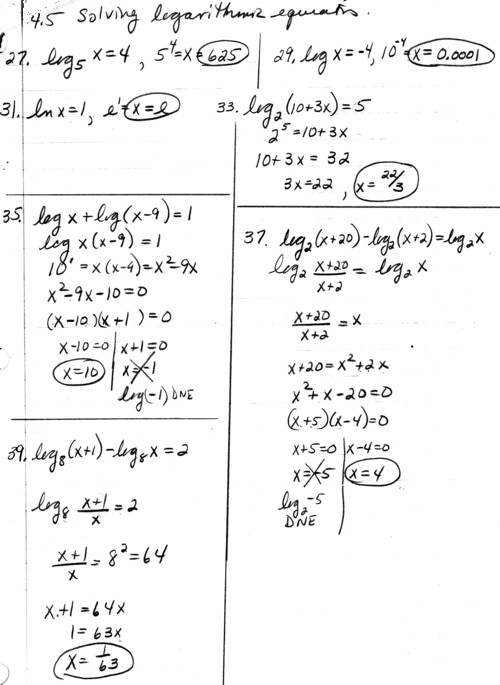 4.5 Solving logarithmic equations.
27. log₅ x = 4, 5⁴ = x = 625
29. log x = -4, 10⁻⁴ = x = 0.0001
31. ln x = 1, e¹ = x = e
33. log₂(10+3x) = 5
2⁵ = 10+3x
10+3x = 32
3x = 22, x = 22/3
35. log x + log(x-9) = 1
log x(x-9) = 1
10¹ = x(x-9) = x²-9x
x²-9x-10 = 0
(x-10)(x+1) = 0
x-10=0 | x+1=0
x=10 | x=-1
log(-1) DNE
37. log₂(x+20) - log₂(x+2) = log₂ x
log₂ (x+20)/(x+2) = log₂ x
(x+20)/(x+2) = x
x+20 = x²+2x
x²+x-20 = 0
(x+5)(x-4) = 0
x+5=0 | x-4=0
x=-5 | x=4
log₂ -5
DNE
39. log₈(x+1) - log₈ x = 2
log₈ (x+1)/x = 2
(x+1)/x = 8² = 64
x+1 = 64x
1 = 63x
x = 1/63